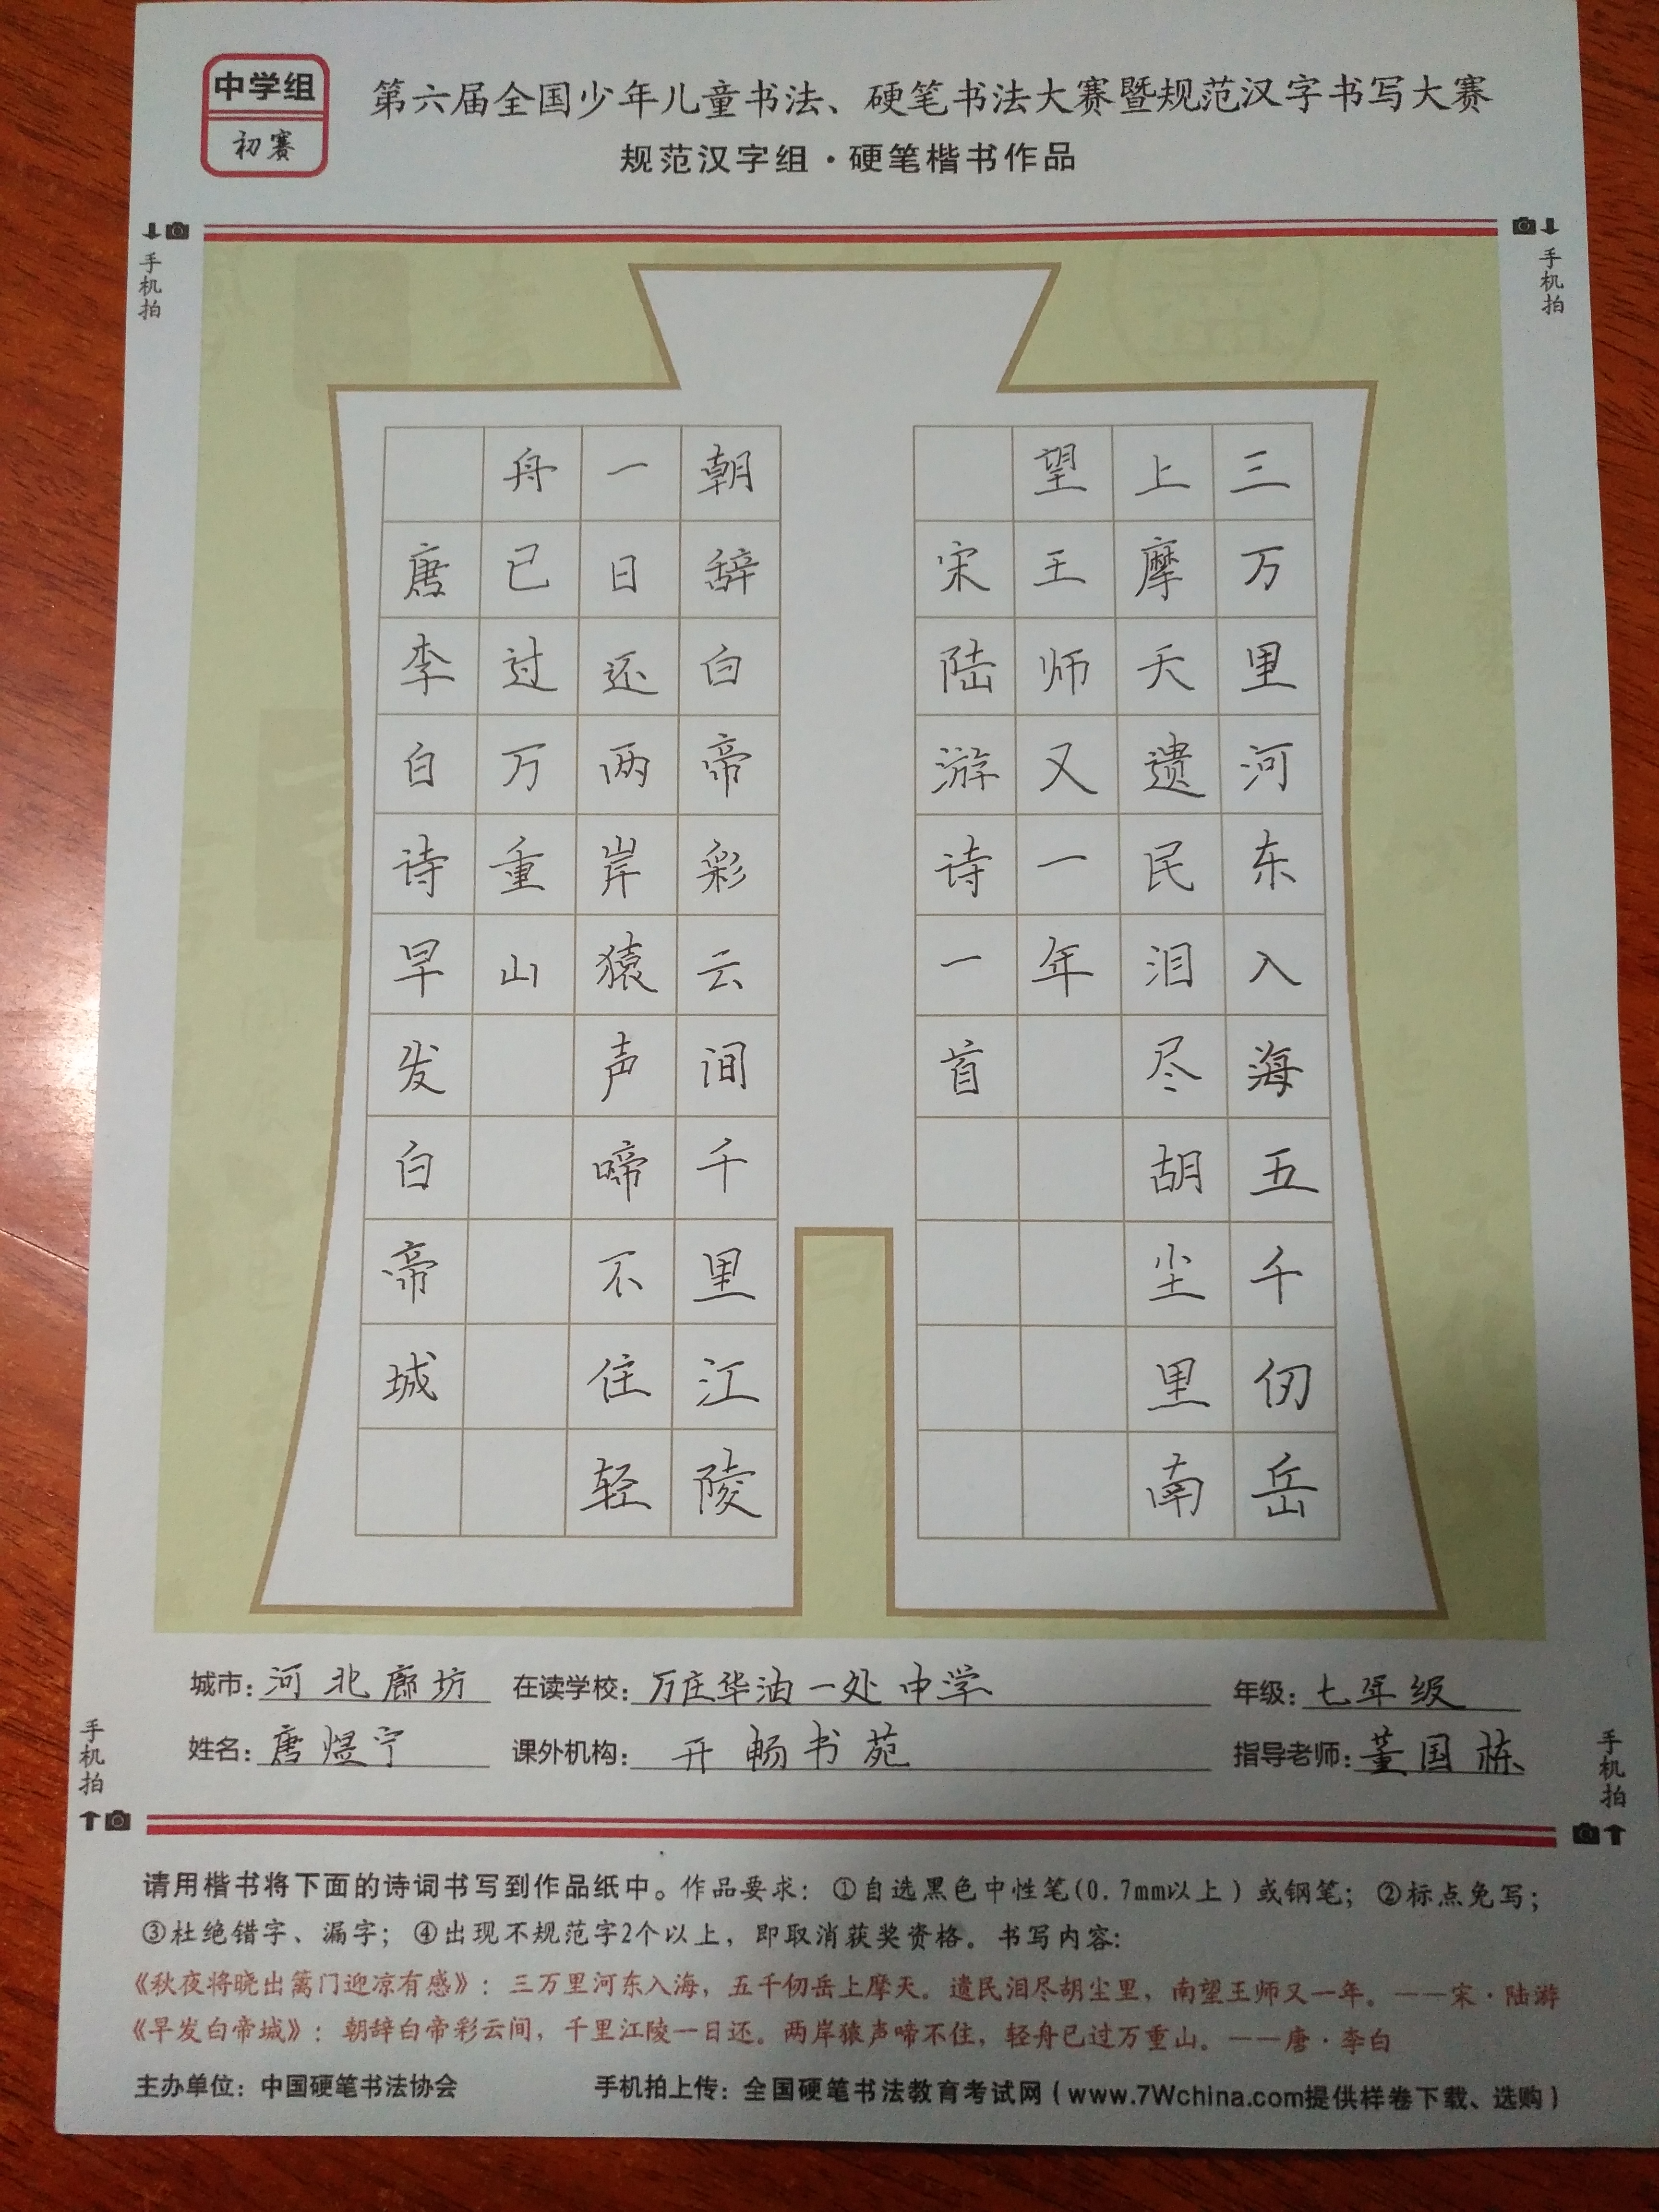 中学组
初赛
第六届全国少年儿童书法、硬笔书法大赛暨规范汉字书写大赛
规范汉字组·硬笔楷书作品
手机拍
手机拍
三万里河东入海五千仞岳
上摩天遗民泪尽胡尘里南
望王师又一年
宋陆游诗一首
朝辞白帝彩云间千里江陵
一日还两岸猿声啼不住轻
舟已过万重山
唐李白诗早发白帝城
城市:河北廊坊 在读学校:万庄华油一处中学 年级:七年级
姓名:唐煜宁 课外机构:开畅书苑 指导老师:董国栋
手机拍
手机拍
请用楷书将下面的诗词书写到作品纸中。作品要求:①自选黑色中性笔(0.7mm以上)或钢笔;②标点免写;
③杜绝错字、漏字;④出现不规范字2个以上,即取消获奖资格。书写内容:
《秋夜将晓出篱门迎凉有感》:三万里河东入海,五千仞岳上摩天。遗民泪尽胡尘里,南望王师又一年。——宋·陆游
《早发白帝城》:朝辞白帝彩云间,千里江陵一日还。两岸猿声啼不住,轻舟已过万重山。——唐·李白
主办单位:中国硬笔书法协会 手机拍上传:全国硬笔书法教育考试网(www.7Wchina.com提供样卷下载、选购)